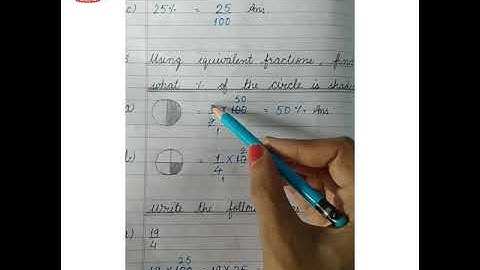 c) 25% = 25/100 Ans.
Using equivalent fractions, find
what % of the circle is shaded
= 1/2 × 100 = 50% Ans.
50
1
b) = 1/4 × 10
2
1
Write the follow
19/4
25
19 × 100 = 19 × 25